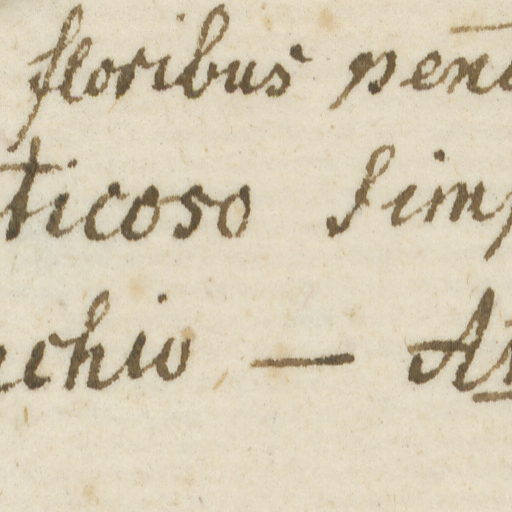 floribus pen
ticoso simp
chio — A